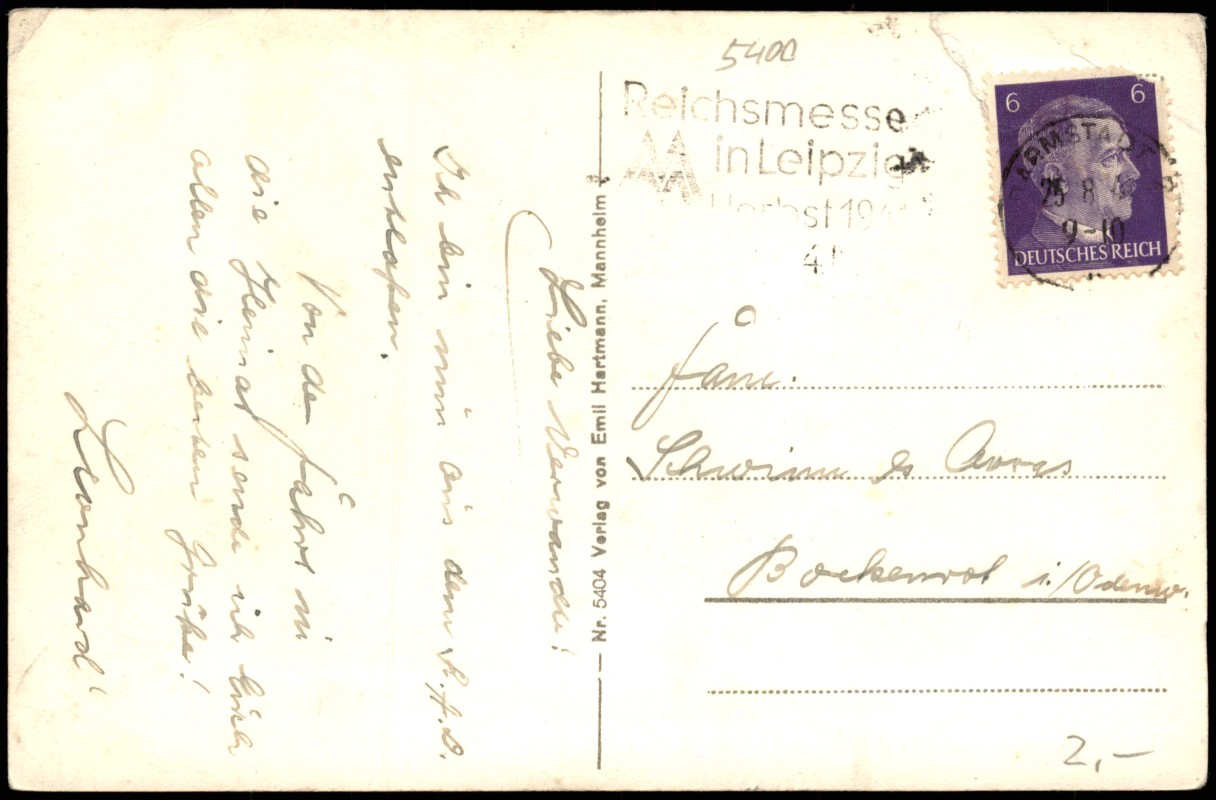 5400
Reichsmesse
in Leipzig
Herbst 19
DARMSTADT
25 8
9-10
6 6
DEUTSCHES REICH
Liebe Verwandte!
Ich bin nun aus dem R.A.D.
entlassen.
Von der Fahrt in
die Heimat sende ich Euch
allen die besten Grüße!
Leonhard!
Nr. 5404 Verlag von Emil Hartmann, Mannheim
Fam.
Schwinn
Bockenrod i./Odenw.
2,–